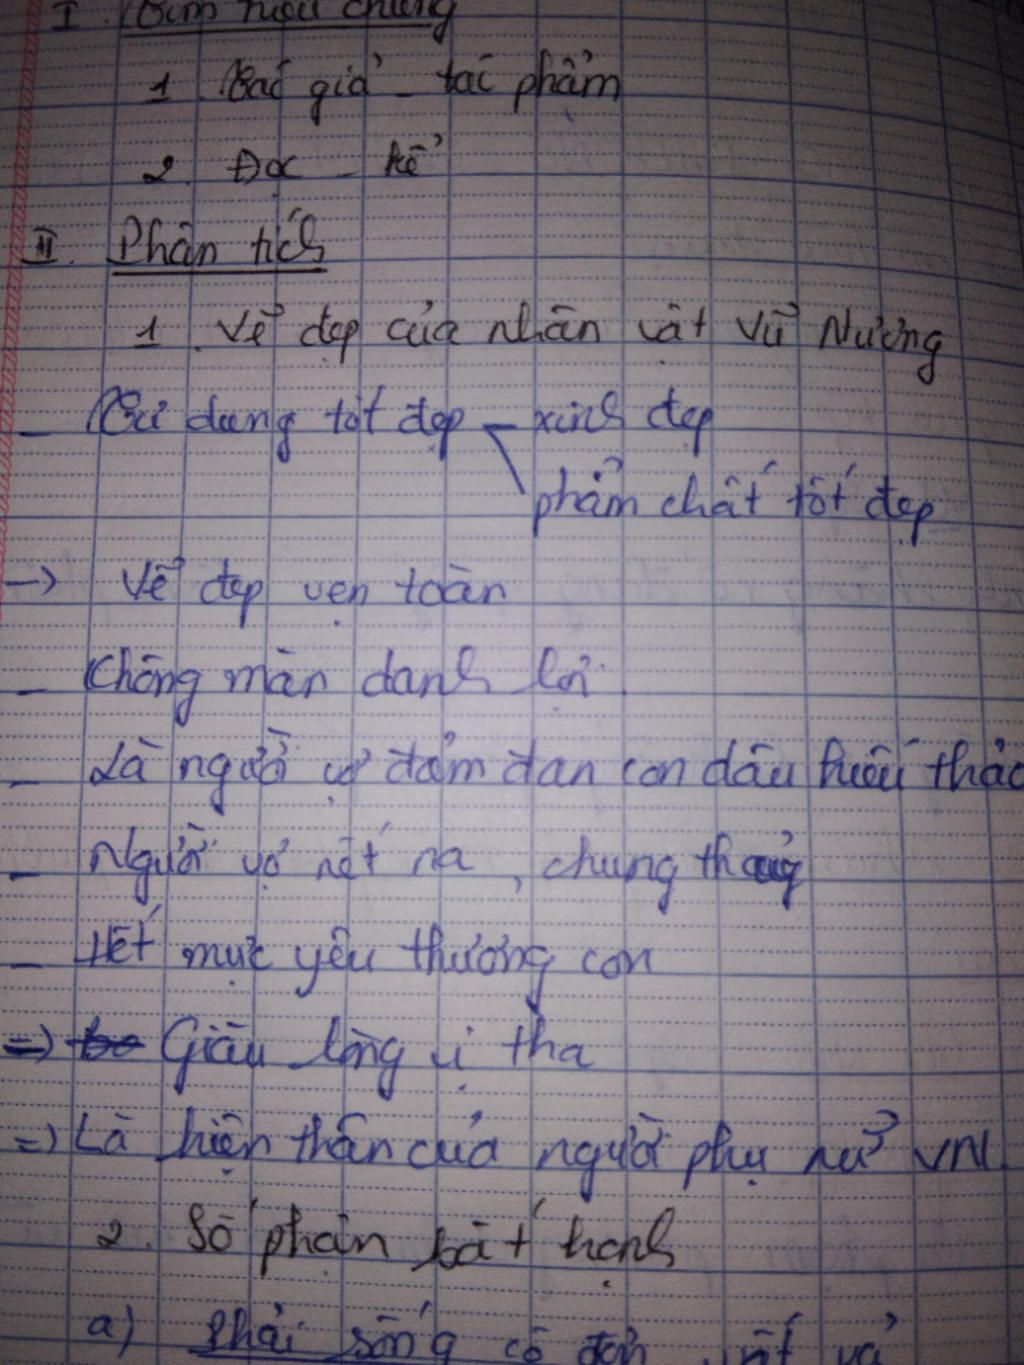 I. Tìm hiểu chung
1. Tác giả - tác phẩm
2. Đọc - kể
II. Phân tích
1. Vẻ đẹp của nhân vật Vũ Nương
- Tư dung tốt đẹp - xinh đẹp
phẩm chất tốt đẹp
-> Vẻ đẹp vẹn toàn
- Không màn danh lợi.
- Là người vợ đảm đan con dâu hiếu thảo
- Người vợ nết na, chung thủy
- Hết mực yêu thương con
=> Giàu lòng vị tha
=> Là hiện thân của người phụ nữ VN.
2. Số phận bất hạnh
a) Phải sống cô đơn vất vả